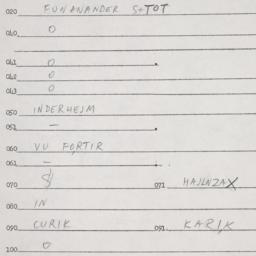 020 FUNANANDER S+TOT
040 0
041 0
042 0
043 0
050 INDERHEJM
051 —
060 VU FORTIR
061 —
070 071 HAJENZAX
080 IN
090 CURIK 091 KARIK
100 0